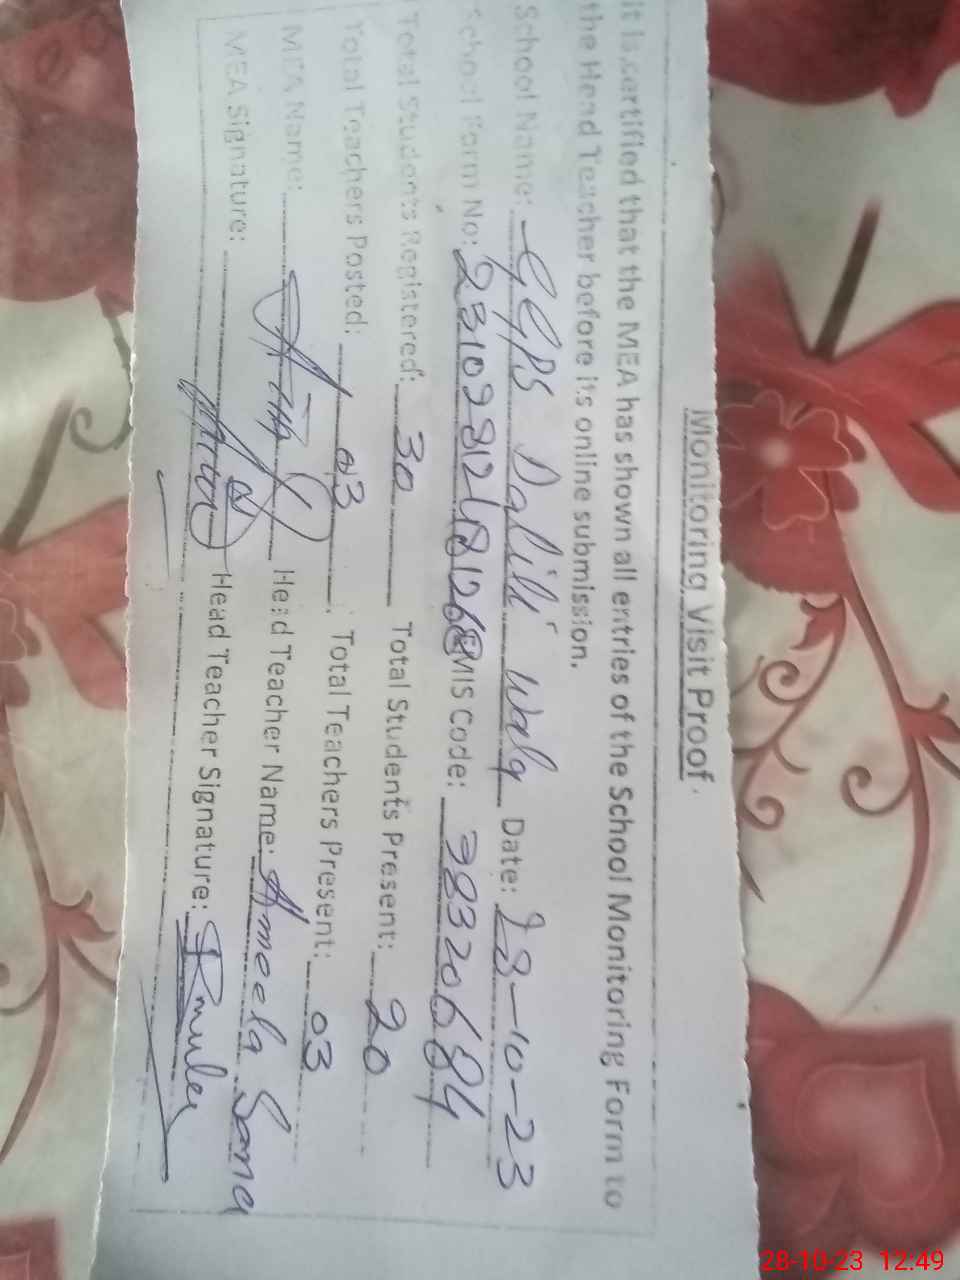 Monitoring Visit Proof
it is certified that the MEA has shown all entries of the School Monitoring Form to
the Head Teacher before its online submission.
School Name: GGPS Dalili Wala Date: 28-10-23
School Form No: EMIS Code: 38320684
Total Students Registered: 30 Total Students Present: 20
Total Teachers Posted: 03 Total Teachers Present: 03
MEA Name: Head Teacher Name: Ameela Sana
MEA Signature: Head Teacher Signature:
28-10-23 12:49